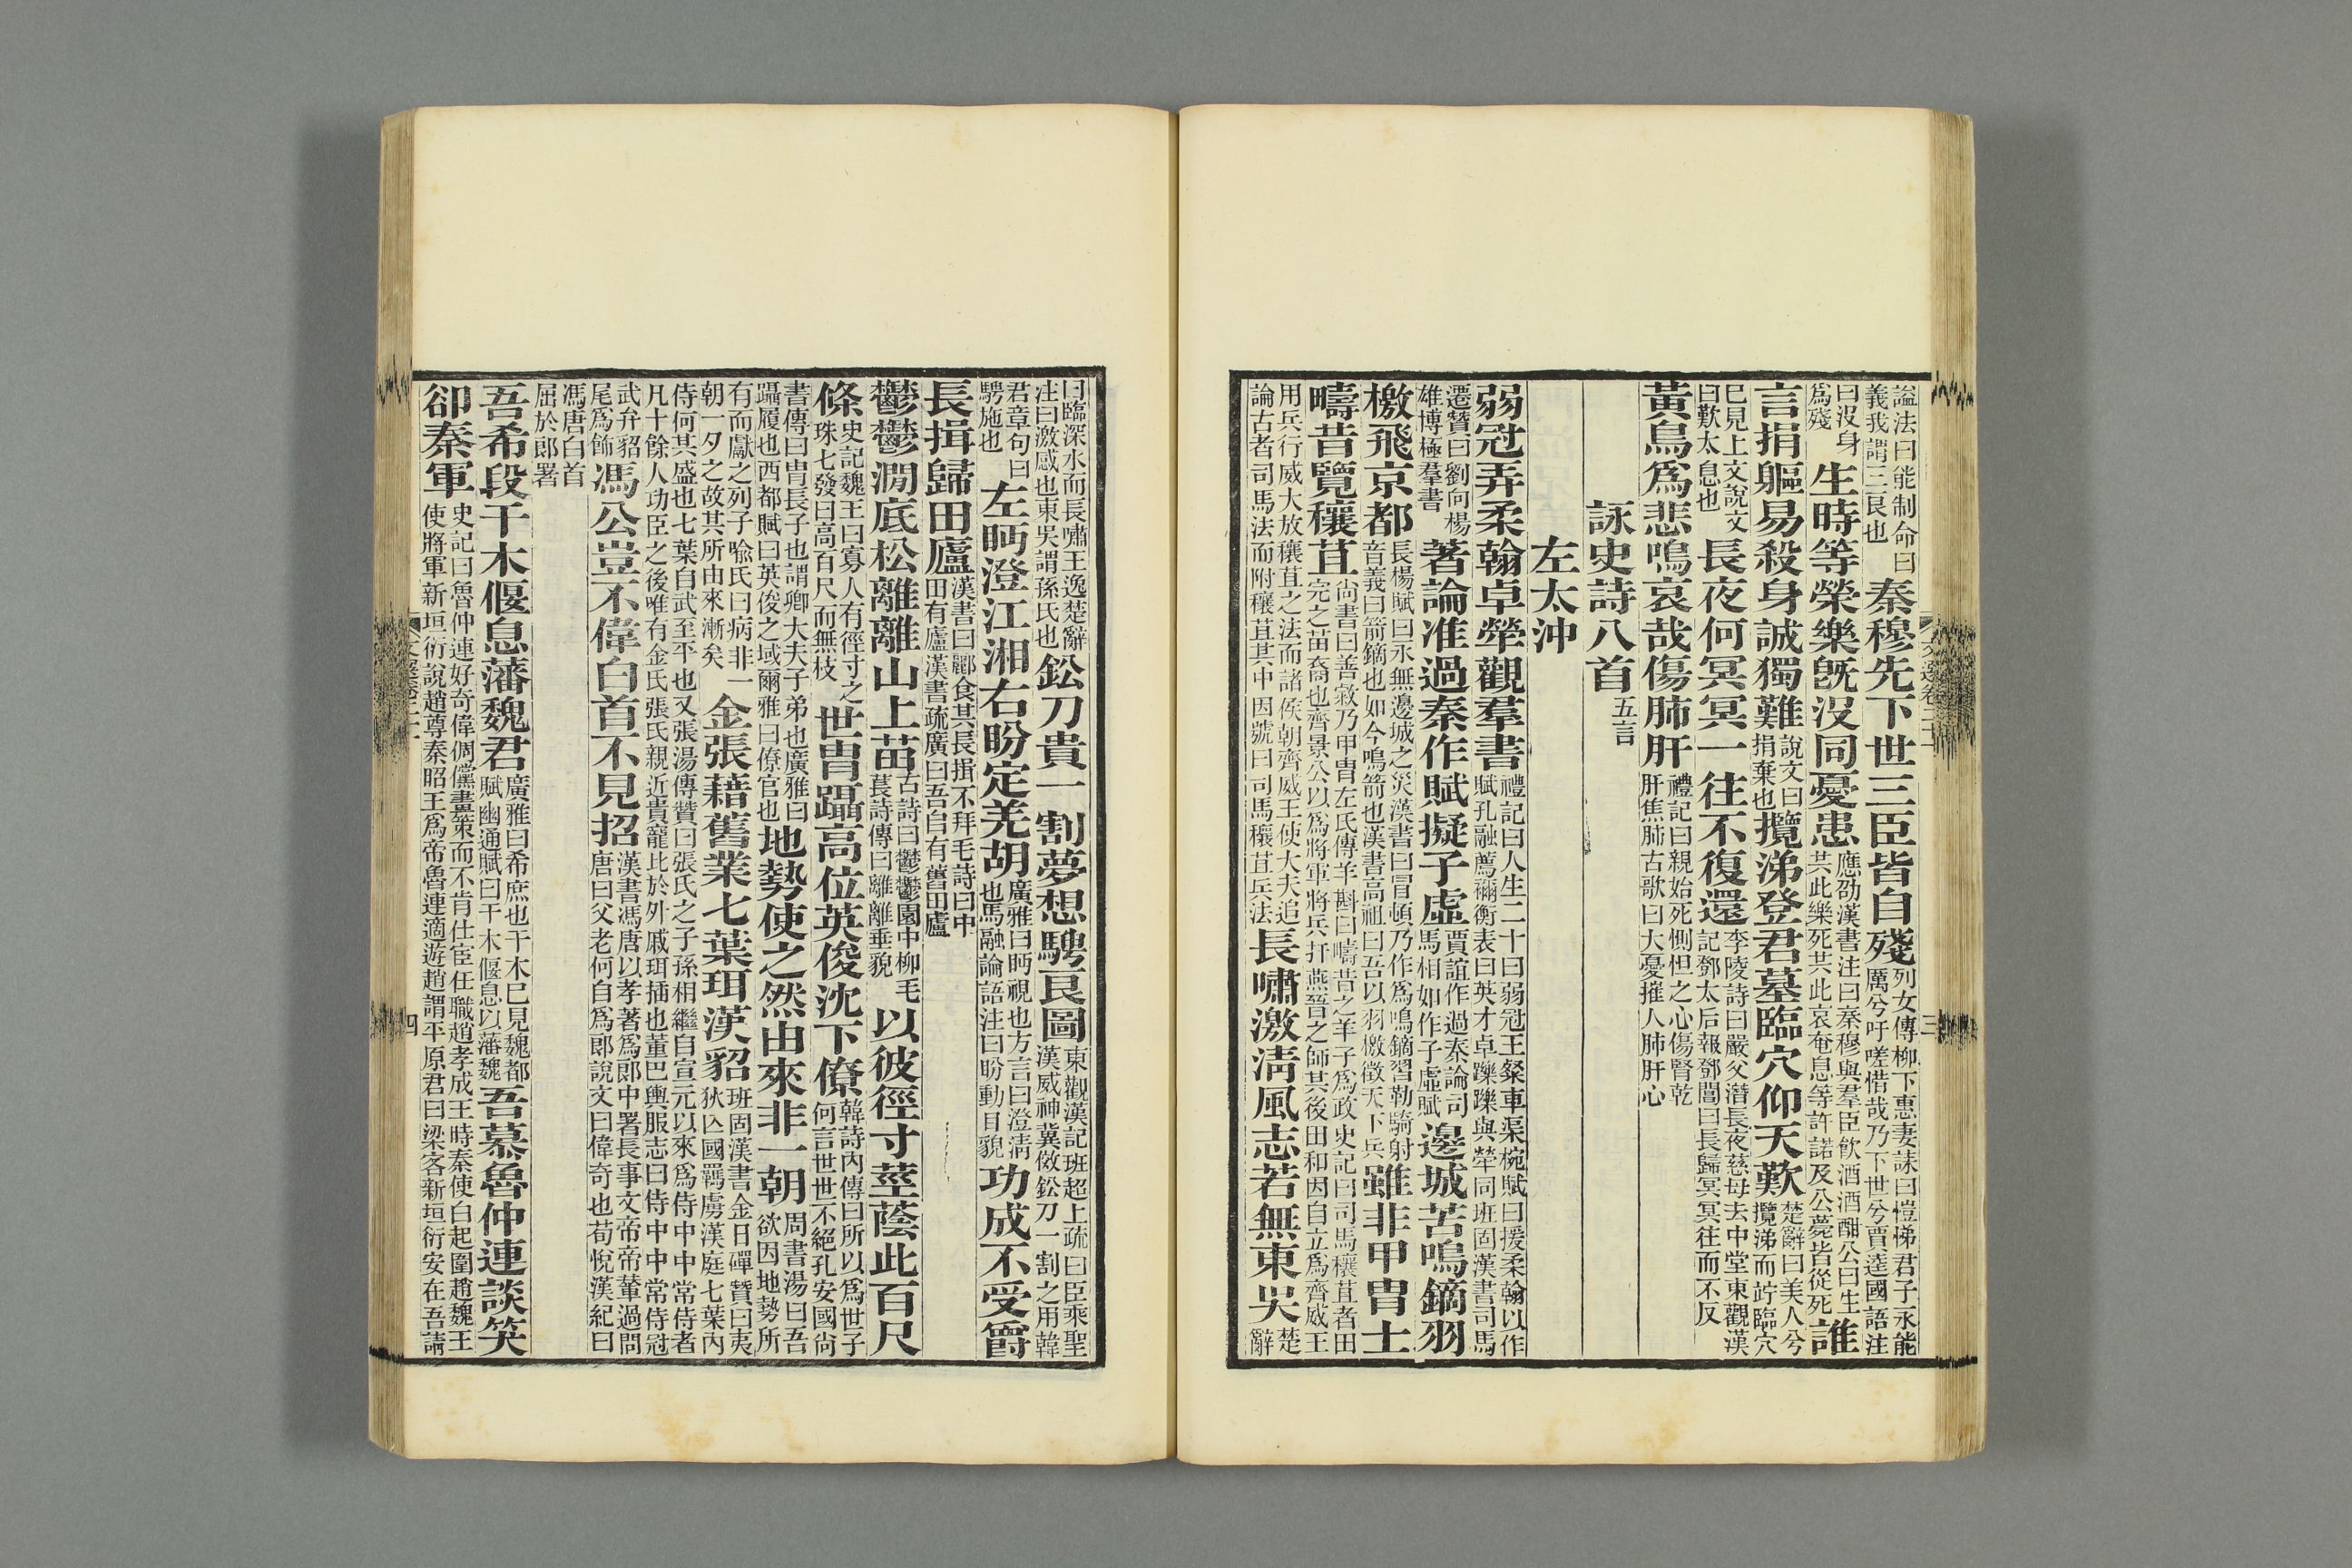 諡法曰能制命曰義我謂三良也秦穆先下世三臣皆自殘列女傳柳下惠妻誄曰愷悌君子永能厲兮吁嗟惜哉乃下世兮賈逵國語注
曰沒身爲殘生時等榮樂旣沒同憂患應劭漢書注曰秦穆與羣臣飮酒酒酣公曰生共此樂死共此哀奄息等許諾及公薨皆從死誰
言捐軀易殺身誠獨難說文曰捐棄也攬涕登君墓臨穴仰天歎楚辭曰美人兮攬涕而竚臨穴
已見上文說文曰歎太息也長夜何冥冥一往不復還李陵詩曰嚴父潛長夜慈母去中堂東觀漢記鄧太后報鄧閶曰長歸冥冥往而不反
黃鳥爲悲鳴哀哉傷肺肝禮記曰親始死惻怛之心傷腎乾肝焦肺古歌曰大憂摧人肺肝心
詠史詩八首五言
左太沖
弱冠弄柔翰卓犖觀羣書禮記曰人生二十曰弱冠王粲車渠椀賦曰援柔翰以作賦孔融薦禰衡表曰英才卓躒躒與犖同班固漢書司馬
遷贊曰劉向楊雄博極羣書著論准過秦作賦擬子虛賈誼作過秦論司馬相如作子虛賦邊城苦鳴鏑羽
檄飛京都長楊賦曰永無邊城之災漢書曰冒頓乃作爲鳴鏑習勒騎射音義曰箭鏑也如今鳴箭也漢書高祖曰吾以羽檄徵天下兵雖非甲冑士
疇昔覽穰苴尚書曰善敹乃甲冑左氏傳羊斟曰疇昔之羊子爲政史記曰司馬穰苴者田完之苗裔也齊景公以爲將軍將兵扞燕晉之師其後田和因自立爲齊威王
用兵行威大放穰苴之法而諸侯朝齊威王使大夫追論古者司馬法而附穰苴其中因號曰司馬穰苴兵法長嘯激淸風志若無東吳楚辭
曰臨深水而長嘯王逸楚辭注曰激感也東吳謂孫氏也鈆刀貴一割夢想騁良圖東觀漢記班超上疏曰臣乘聖漢威神冀俲鈆刀一割之用韓
君章句曰騁施也左眄澄江湘右盼定羌胡廣雅曰眄視也方言曰澄淸也馬融論語注曰盼動目貌功成不受爵
長揖歸田廬漢書曰酈食其長揖不拜毛詩曰中田有廬漢書疏廣曰吾自有舊田廬
鬱鬱澗底松離離山上苗古詩曰鬱鬱園中柳毛萇詩傳曰離離垂貌以彼徑寸莖蔭此百尺
條史記魏王曰寡人有徑寸之珠七發曰高百尺而無枝世冑躡高位英俊沈下僚韓詩內傳曰所以爲世子何言世世不絕孔安國尚
書傳曰冑長子也謂卿大夫子弟也廣雅曰躡履也西都賦曰英俊之域爾雅曰僚官也地勢使之然由來非一朝周書湯曰吾欲因地勢所
有而獻之列子喩氏曰病非一朝一夕之故其所由來漸矣金張藉舊業七葉珥漢貂班固漢書金日磾贊曰夷狄亾國羈虜漢庭七葉內
侍何其盛也七葉自武至平也又張湯傳贊曰張氏之子孫相繼自宣元以來爲侍中中常侍者凡十餘人功臣之後唯有金氏張氏親近貴寵比於外戚珥插也董巴輿服志曰侍中中常侍冠
武弁貂尾爲飾馮公豈不偉白首不見招漢書馮唐以孝著爲郎中署長事文帝帝輦過問唐曰父老何自爲郎說文曰偉奇也荀悅漢紀曰
馮唐白首屈於郎署
吾希段干木偃息藩魏君廣雅曰希庶也干木已見魏都賦幽通賦曰干木偃息以藩魏吾慕魯仲連談笑
卻秦軍史記曰魯仲連好奇偉倜儻畫策而不肯仕宦任職趙孝成王時秦使白起圍趙魏王使將軍新垣衍說趙尊秦昭王爲帝魯連適遊趙謂平原君曰梁客新垣衍安在吾請